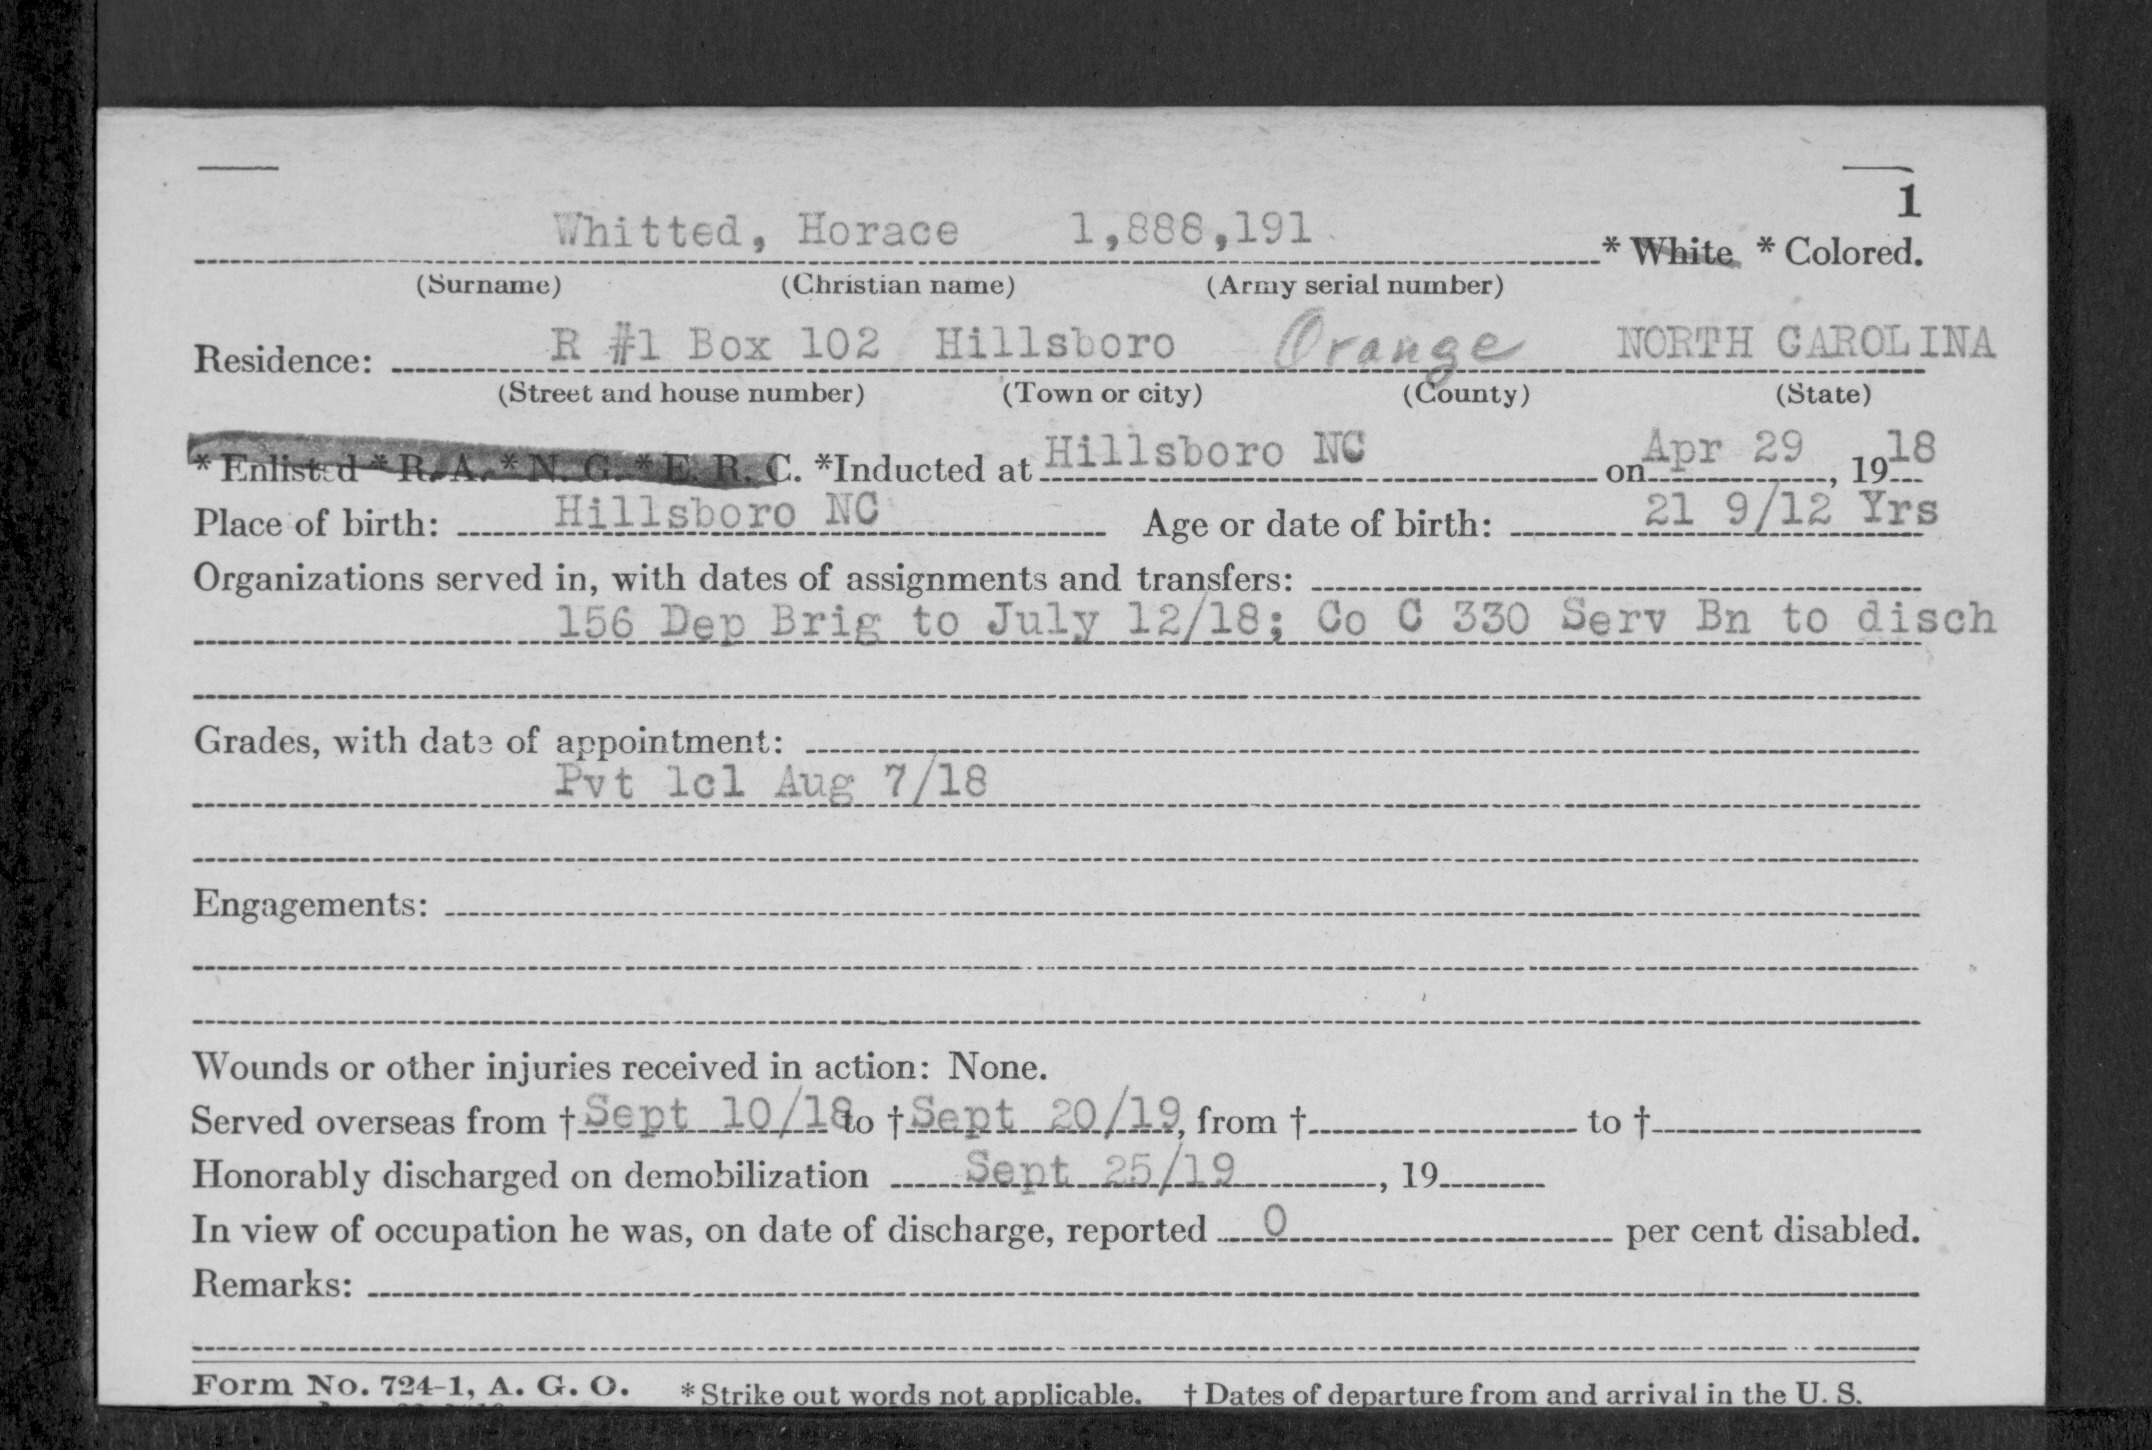 1
Whitted, Horace 1,888,191 * White * Colored.
(Surname) (Christian name) (Army serial number)
Residence: R #1 Box 102 Hillsboro Orange NORTH CAROLINA
(Street and house number) (Town or city) (County) (State)
* Enlisted * R. A. * N. G. * E. R. C. *Inducted at Hillsboro NC on Apr 29, 1918
Place of birth: Hillsboro NC Age or date of birth: 21 9/12 Yrs
Organizations served in, with dates of assignments and transfers:
156 Dep Brig to July 12/18; Co C 330 Serv Bn to disch
Grades, with date of appointment:
Pvt 1cl Aug 7/18
Engagements:
Wounds or other injuries received in action: None.
Served overseas from † Sept 10/18 to † Sept 20/19, from † to †
Honorably discharged on demobilization Sept 25/19, 19
In view of occupation he was, on date of discharge, reported 0 per cent disabled.
Remarks:
Form No. 724-1, A. G. O. * Strike out words not applicable. † Dates of departure from and arrival in the U. S.